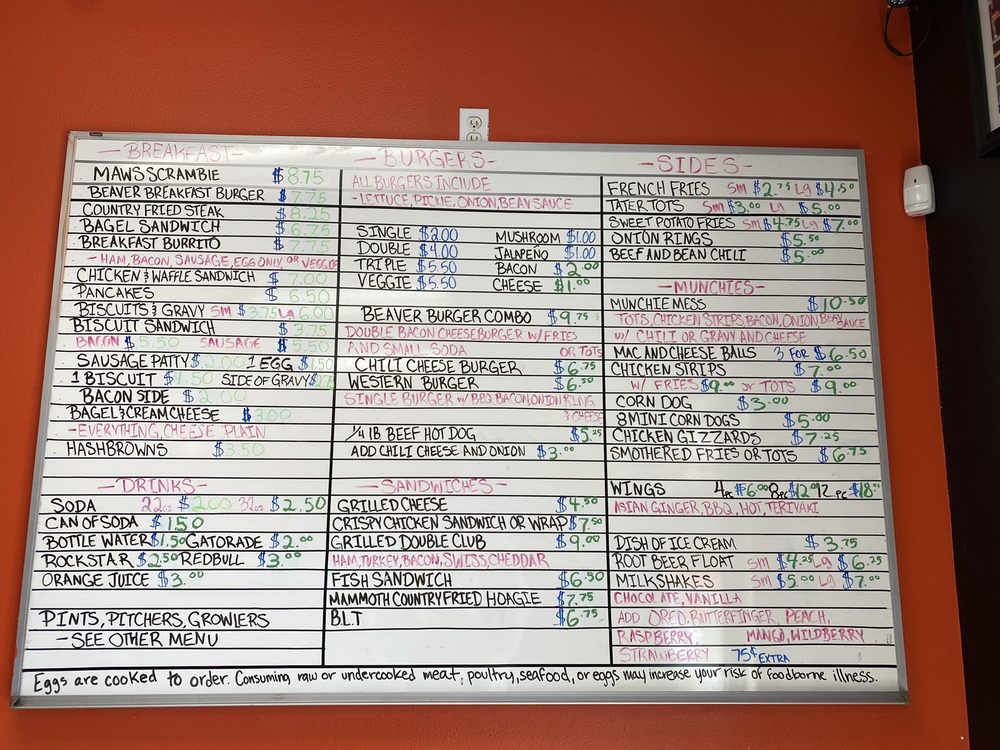 -BREAKFAST-
MAWS SCRAMBLE $8.75
BEAVER BREAKFAST BURGER $7.75
COUNTRY FRIED STEAK $8.25
BAGEL SANDWICH $6.75
BREAKFAST BURRITO $7.75
-HAM, BACON, SAUSAGE, EGG ONLY OR VEGGIE
CHICKEN & WAFFLE SANDWICH $7.00
PANCAKES $6.50
BISCUITS & GRAVY SM $3.75 Lg 6.00
BISCUIT SANDWICH $3.75
BACON $5.50 SAUSAGE $5.50
SAUSAGE PATTY $2.00 1 EGG $1.50
1 BISCUIT $1.50 SIDE OF GRAVY
BACON SIDE $2.00
BAGEL & CREAM CHEESE $3.00
-EVERYTHING, CHEESE PLAIN
HASHBROWNS $3.50
-DRINKS-
SODA 22oz $2.00 32oz $2.50
CAN OF SODA $1.50
BOTTLE WATER $1.50 GATORADE $2.00
ROCKSTAR $2.50 REDBULL $3.00
ORANGE JUICE $3.00
PINTS, PITCHERS, GROWLERS
-SEE OTHER MENU
-BURGERS-
ALL BURGERS INCLUDE
-LETTUCE, PICKLE, ONION, BEAV SAUCE
SINGLE $2.00 MUSHROOM $1.00
DOUBLE $4.00 JALAPEÑO $1.00
TRIPLE $5.50 BACON $2.00
VEGGIE $5.50 CHEESE $1.00
BEAVER BURGER COMBO $9.75
DOUBLE BACON CHEESEBURGER W/ FRIES
AND SMALL SODA OR TOTS
CHILI CHEESE BURGER $6.75
WESTERN BURGER $6.50
SINGLE BURGER W/ BBQ, BACON, ONION RING
& CHEESE
1/4 LB BEEF HOT DOG $5.25
ADD CHILI CHEESE AND ONION $3.00
-SANDWICHES-
GRILLED CHEESE $4.50
CRISPY CHICKEN SANDWICH OR WRAP $7.50
GRILLED DOUBLE CLUB $9.00
HAM, TURKEY, BACON, SWISS, CHEDDAR
FISH SANDWICH $6.50
MAMMOTH COUNTRY FRIED HOAGIE $7.75
BLT $6.75
-SIDES-
FRENCH FRIES Sm $2.75 Lg $4.50
TATER TOTS Sm $3.00 Lg $5.00
SWEET POTATO FRIES Sm $4.75 Lg $7.00
ONION RINGS $5.50
BEEF AND BEAN CHILI $5.00
-MUNCHIES-
MUNCHIE MESS $10.50
TOTS, CHICKEN STRIPS BACON, ONION BEAV SAUCE
W/ CHILI OR GRAVY AND CHEESE
MAC AND CHEESE BALLS 3 FOR $6.50
CHICKEN STRIPS $7.00
W/ FRIES $9.00 or TOTS $9.00
CORN DOG $3.00
8 MINI CORN DOGS $5.00
CHICKEN GIZZARDS $7.25
SMOTHERED FRIES OR TOTS $6.75
WINGS 4PC $6.00 8PC $12 12 PC $18
ASIAN GINGER, BBQ, HOT, TERIYAKI
DISH OF ICE CREAM $3.75
ROOT BEER FLOAT Sm $4.25 Lg $6.25
MILKSHAKES Sm $5.00 Lg $7.00
CHOCOLATE, VANILLA
ADD OREO, BUTTERFINGER, PEACH,
RASPBERRY, MANGO, WILDBERRY
STRAWBERRY 75¢ EXTRA
Eggs are cooked to order. Consuming raw or undercooked meat, poultry, seafood, or eggs may increase your risk of foodborne illness.